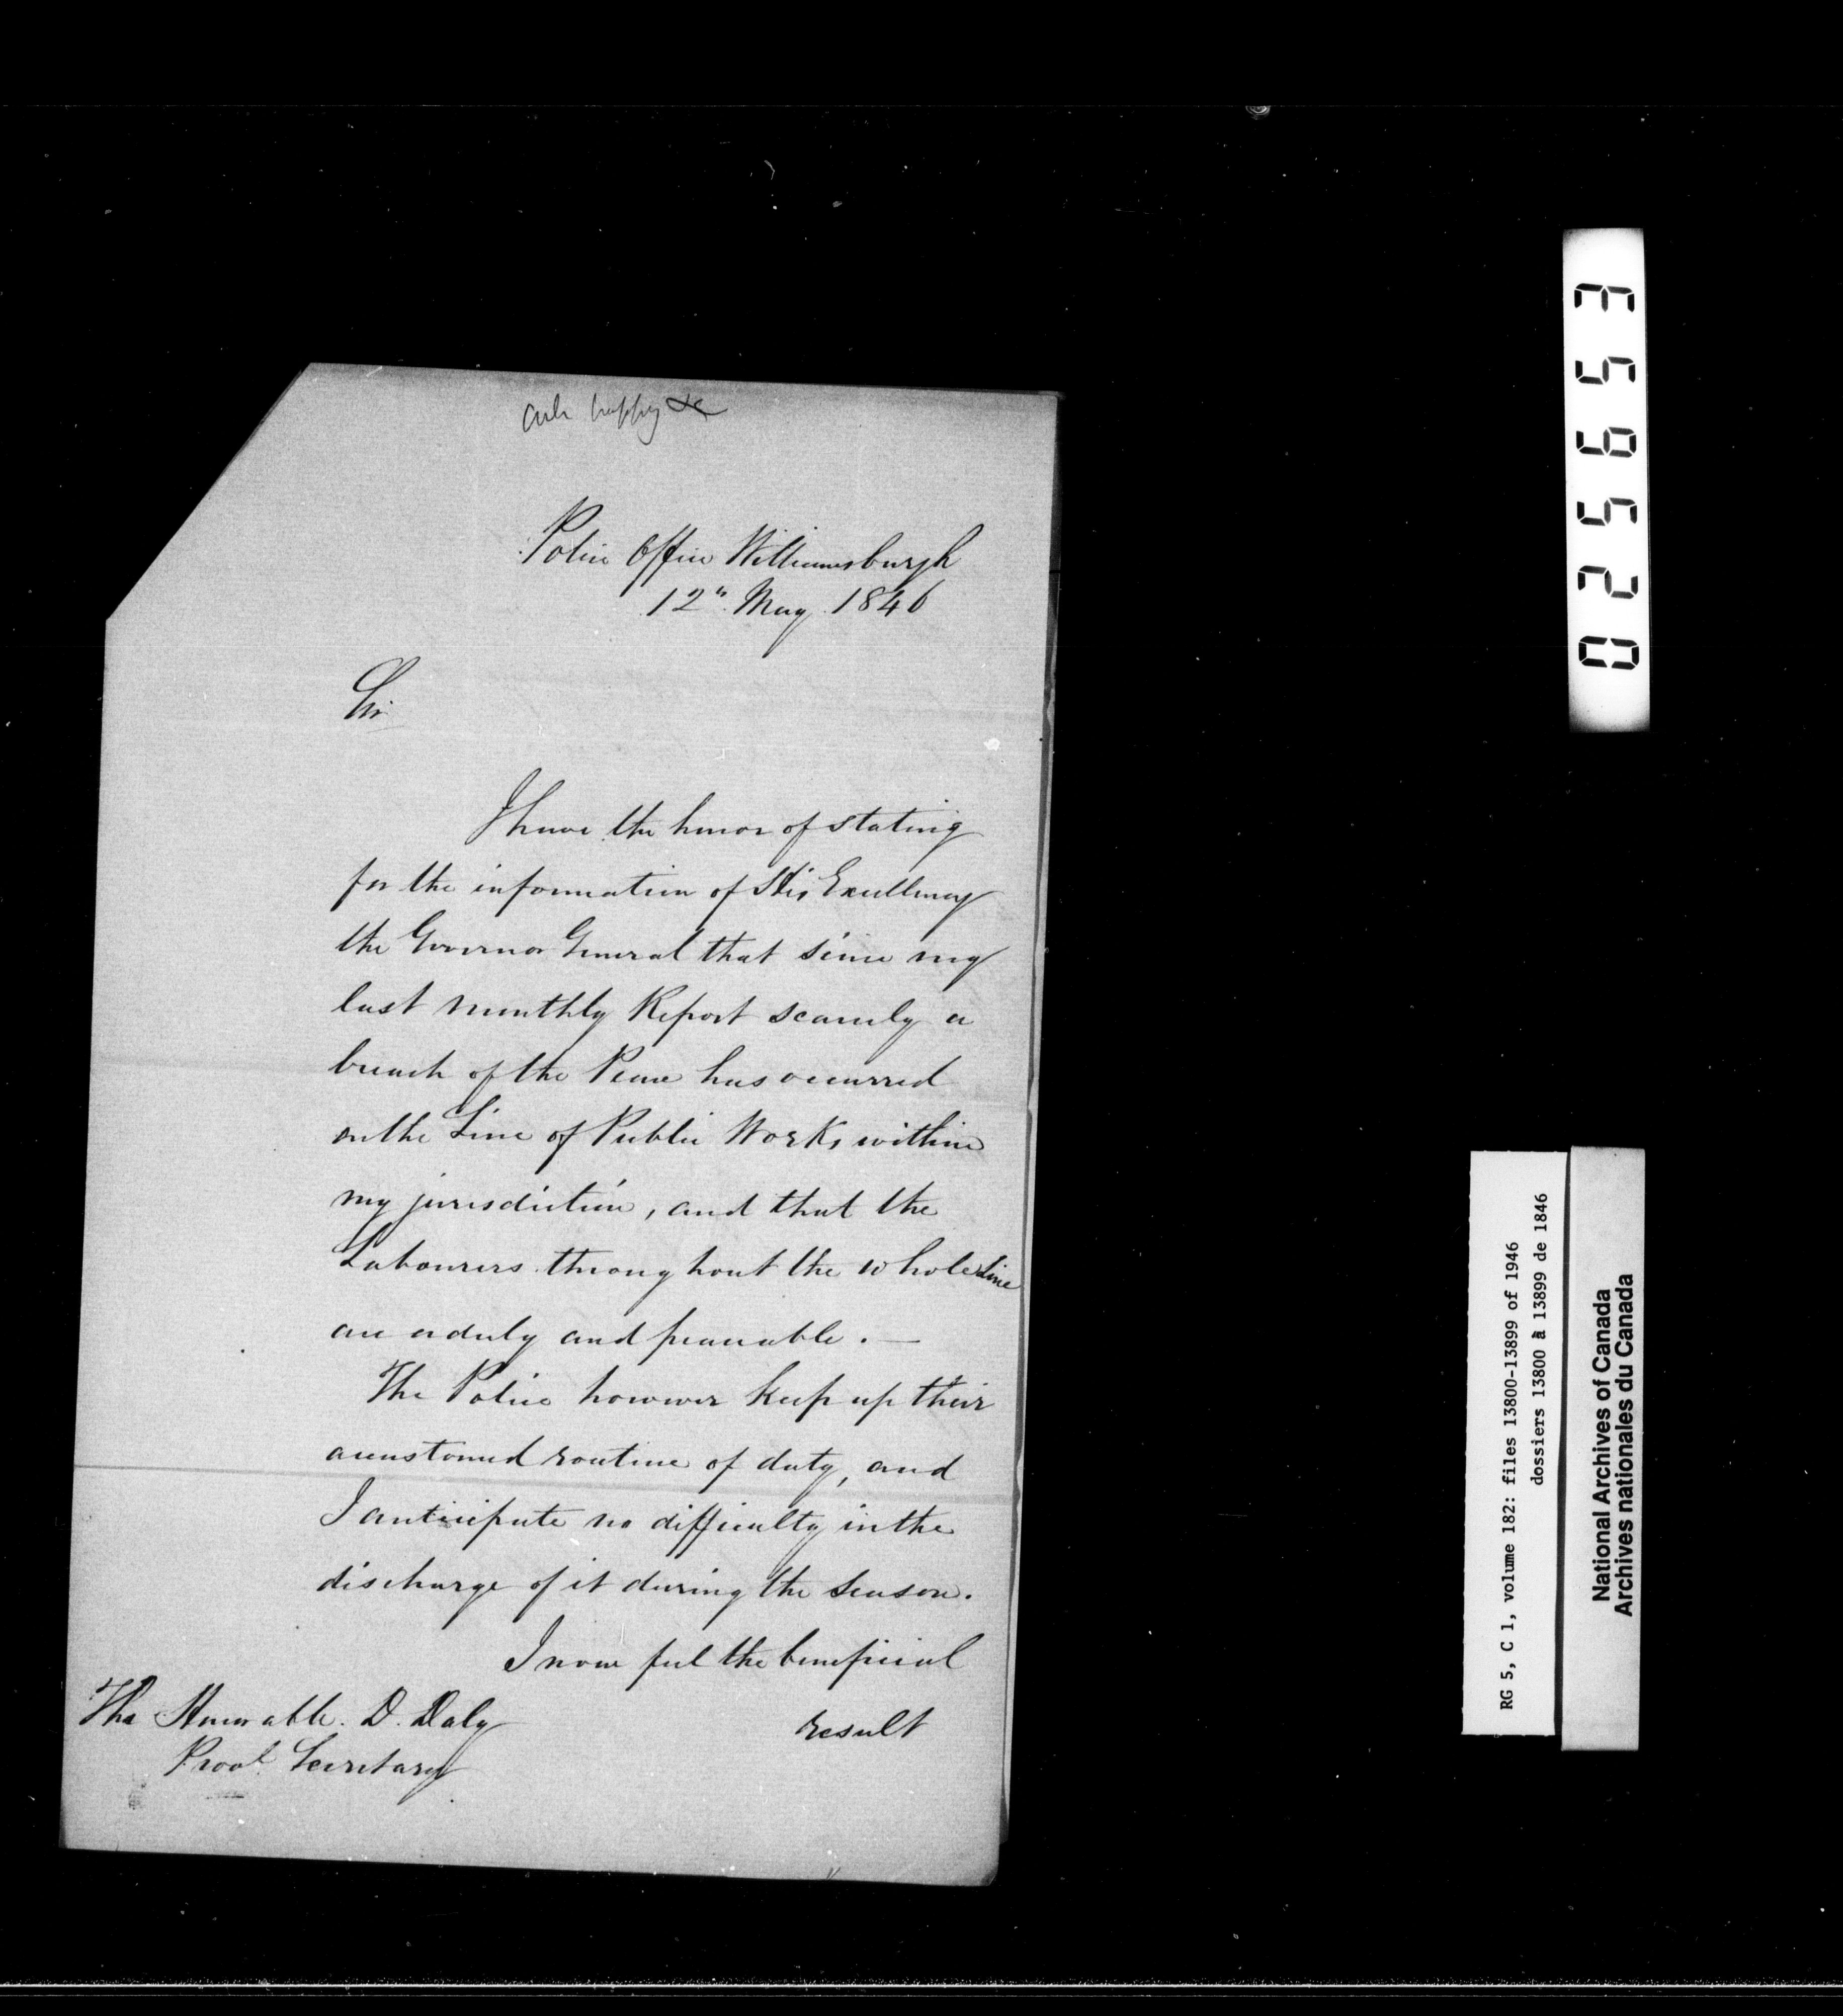 happy &c
Police Office Williamsburgh
12th May 1846
Sir
I have the honor of stating
for the information of His Excellency
the Governor General that since my
last monthly Report scarcely a
breach of the Peace has occurred
on the Line of Public Works within
my jurisdiction, and that the
Labourers throughout the whole Line
are orderly and peaceable. —
The Police however keep up their
accustomed routine of duty, and
I anticipate no difficulty in the
discharge of it during the Season.
I now feel the beneficial
result
The Honorable. D. Daly
Provl. Secretary
025653
RG 5, C 1, volume 182: files 13800-13899 of 1946
dossiers 13800 à 13899 de 1846
National Archives of Canada
Archives nationales du Canada